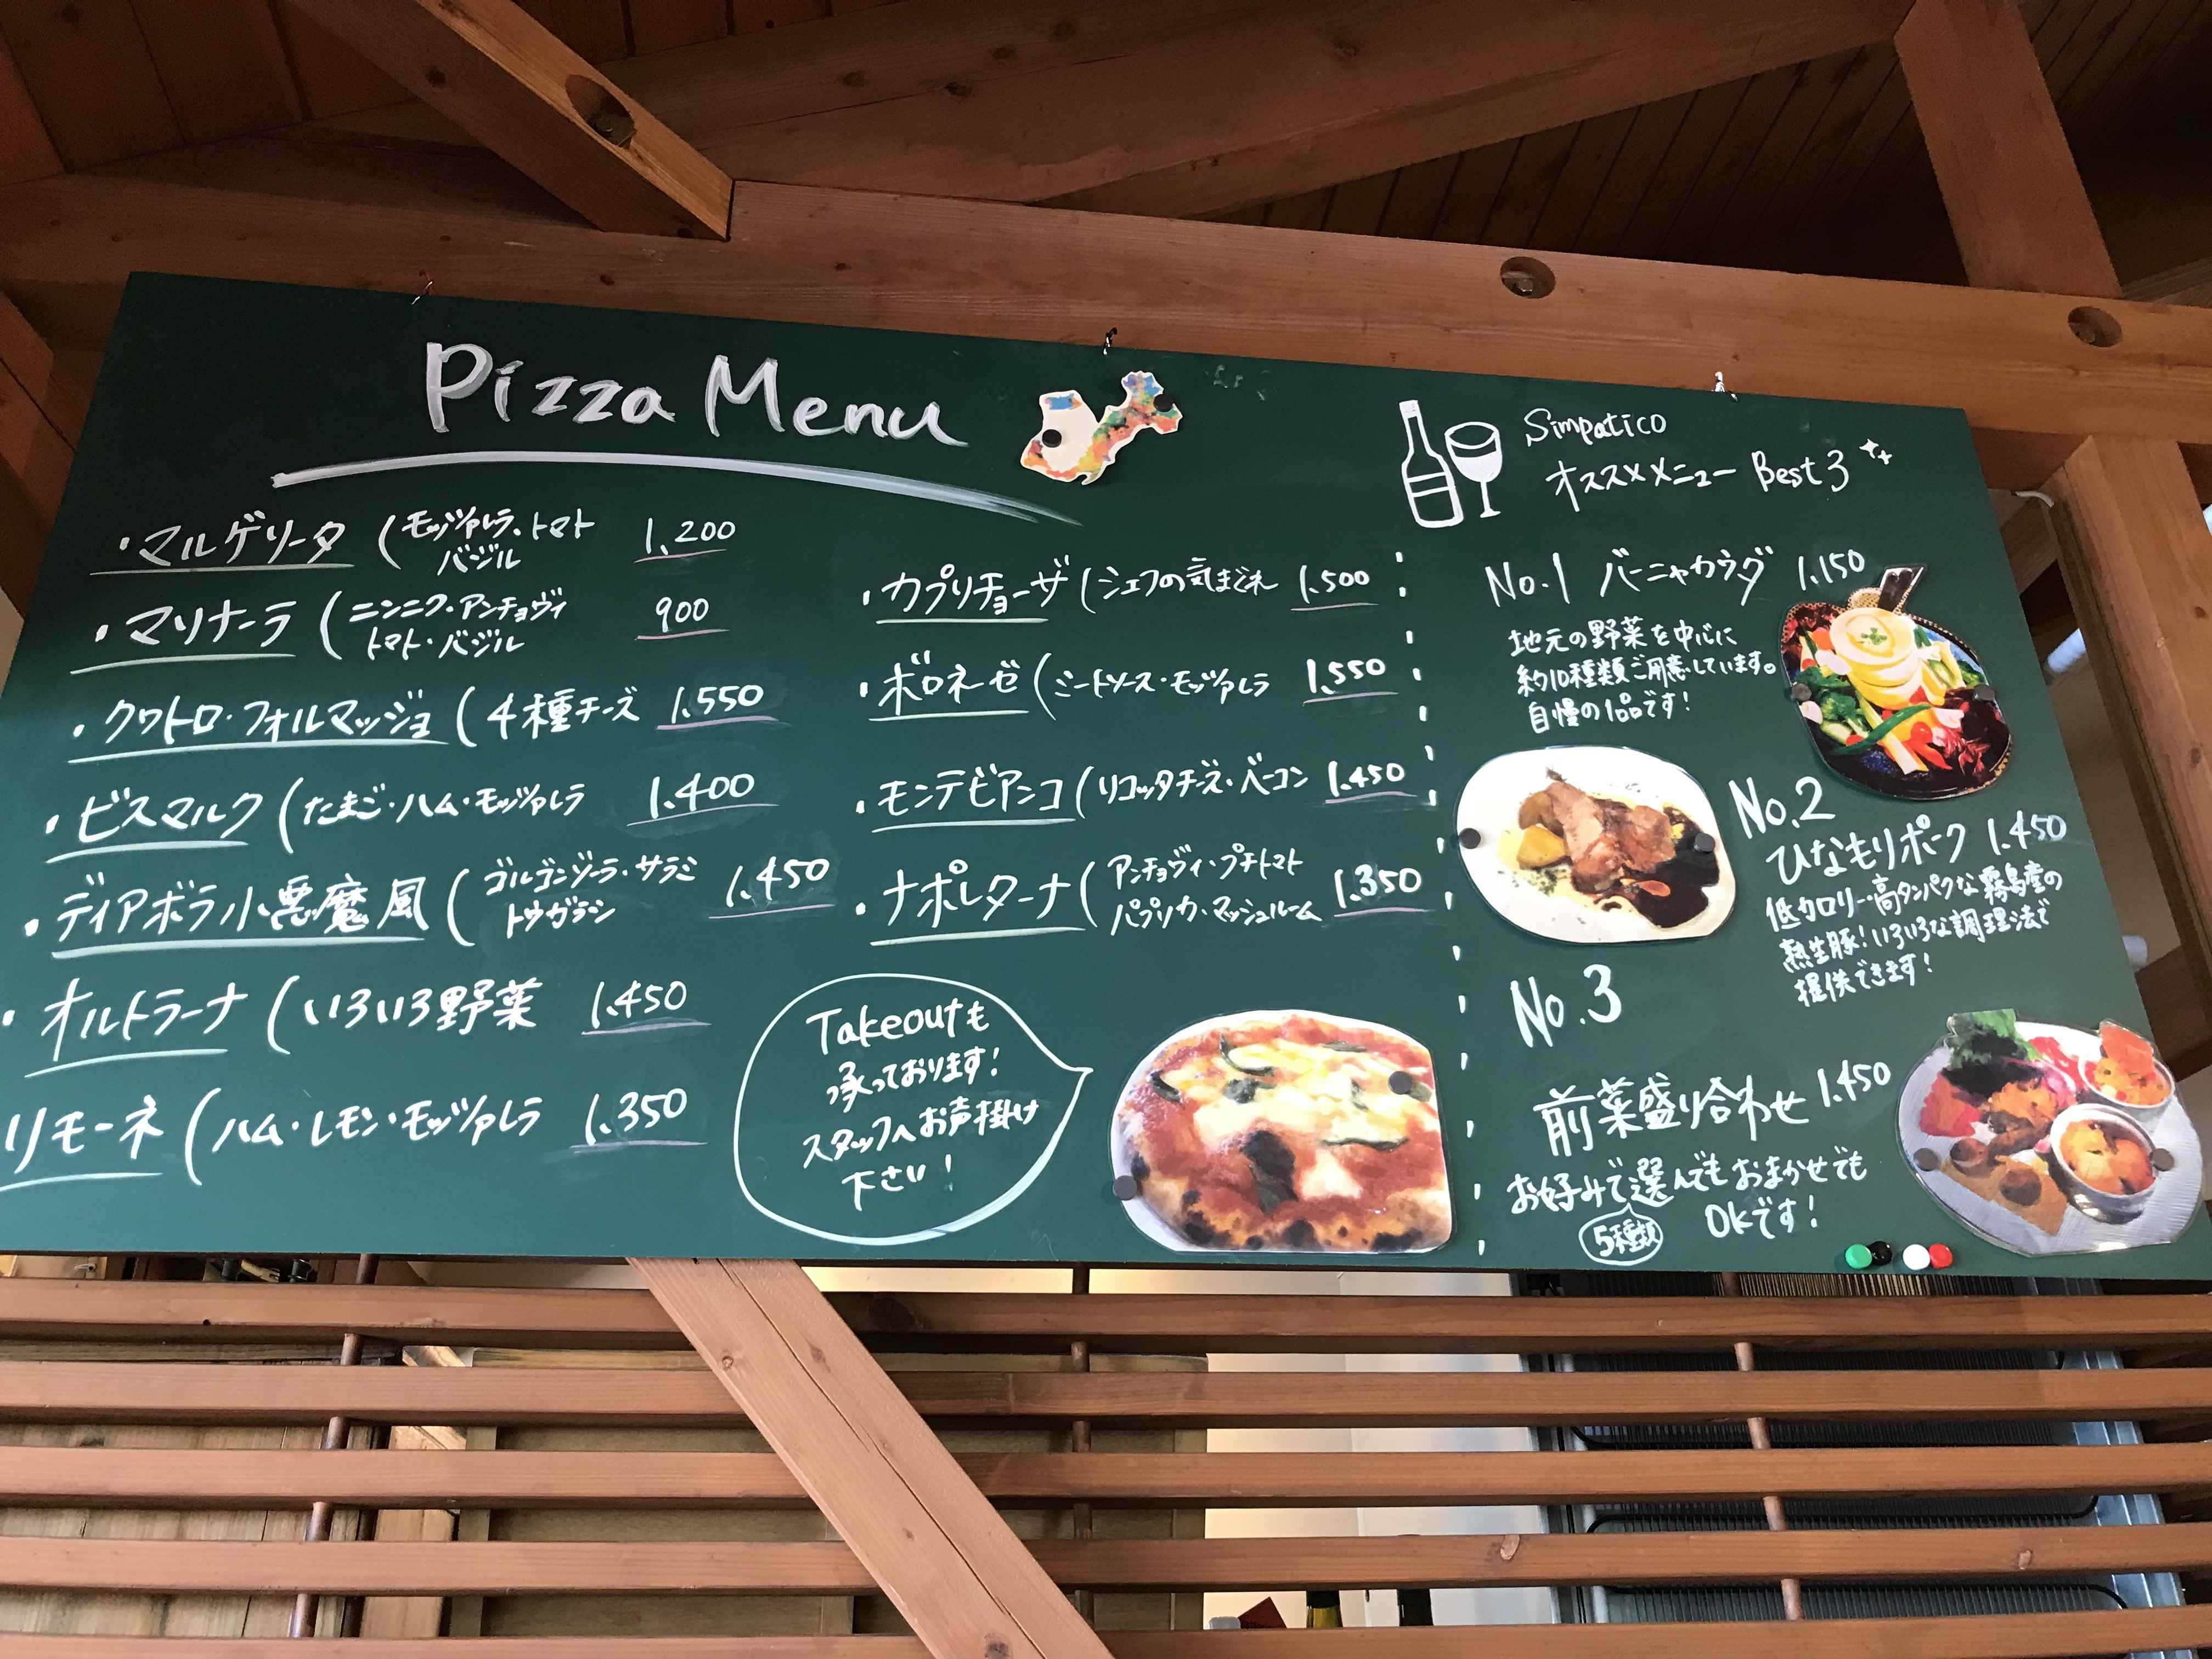 Pizza Menu
・マルゲリータ (モッツァレラ、トマト
バジル 1,200
・マリナーラ (ニンニク・アンチョヴィ
トマト・バジル 900
・クワトロ・フォルマッジョ (4種チーズ 1,550
・ビスマルク (たまご・ハム・モッツァレラ 1,400
・ディアボラ小悪魔風 (ゴルゴンゾーラ・サラミ
トウガラシ 1,450
・オルトラーナ (いろいろ野菜 1,450
リモーネ (ハム・レモン・モッツァレラ 1,350
・カプリチョーザ (シェフの気まぐれ 1,500
・ボロネーゼ (ミートソース・モッツァレラ 1,550
・モンテビアンコ (リコッタチーズ・ベーコン 1,450
・ナポレターナ (アンチョヴィ・プチトマト
パプリカ・マッシュルーム 1,350
Takeoutも
承っております!
スタッフへお声掛け
下さい!
Simpatico
オススメメニュー Best 3
No.1 バーニャカウダ 1,150
地元の野菜を中心に
約10種類ご用意しています。
自慢の1品です!
No.2
ひなもりポーク 1,450
低カロリー・高タンパクな霧島産の
熟生豚!いろいろな調理法で
提供できます!
No.3
前菜盛り合わせ 1,450
お好みで選んでもおまかせでも
5種類 OKです!